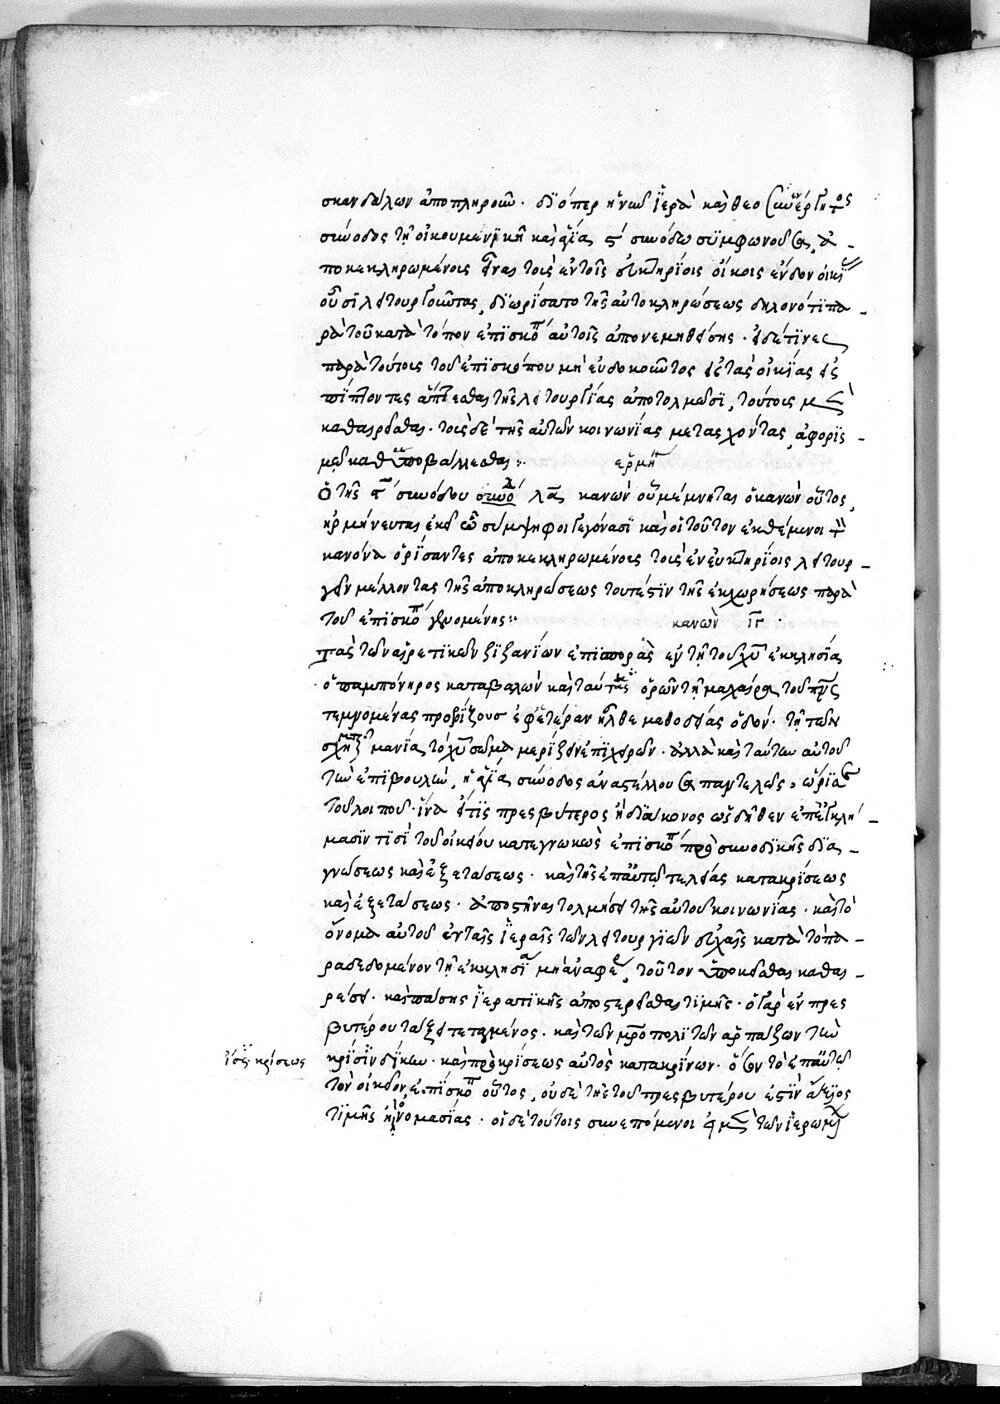 σκανδάλων ἀποπληροῖ. διόπερ ἡ νῦν ἱερὰ καὶ θεοσυνέργητος
σύνοδος τῇ οἰκουμενικῇ καὶ ἁγία ϛ´ συνόδω συμφωνοῦσα, ἀ-
ποκεκληρωμένοις τινας τοῖς ἐν τοῖς εὐκτηρίοις οἴκοις ἔνδον οἰκί
οὖσι λειτουργοῦντας, διωρίσατο τῆς ἀυτοκληρώσεως δηλονότι πα-
ρὰ τοῦ κατὰ τόπον ἐπισκόπ αὐτοῖς ἀπονεμηθείσης. εἰ δέ τινες
παρὰ τούτοις τοῦ ἐπισκόπου μὴ εὐδοκοῦντος εἰς τὰς οἰκίας εἰσ
πίπτοντες ἅπτεσθαι τῆς λειτουργίας ἀποτολμῶσι, τούτοις μὲν
καθαιρεῖσθαι. τοὺς δὲ τῆς αὐτῶν κοινωνίας μετασχόντας, ἀφορισ-
μῶ καθυποβάλλεσθαι:- ἑρμη
Ὁ τῆς ϛ συνόδου λα κανὼν οὗ μέμνηται ὁ κανὼν οὗτος,
ἡρμήνευται ἐκεῖ ὧ σύμψηφοι γεγόνασι καὶ οἱ τοῦτον ἐκθέμενοι τ
κανόνα ὁρίσαντες ἀποκεκληρωμένοις τοὺς ἐν εὐκτηρίοις λειτουρ-
γεῖν μέλλοντας τῆς ἀποκληρώσεως τουτέστιν τῆς ἐκχωρήσεως παρὰ
τοῦ ἐπισκόπ γενομένης:- κανὼν ιγ.
Τὰς τῶν αἱρετικῶν ζιζανίων ἐπισπορὰς ἐν τῇ τοῦ χυ ἐκκλησία
ὁ παμπόνηρος καταβαλὼν καὶ ταύτας ὁρῶν τῇ μαχαίρα τοῦ πνς
τεμνομένας προρίζους ἐφ' ἑτέραν ἦλθε μεθοδείας ὁδόν. τῇ τῶν
σχισματ μανία τὸ χυ σῶμα μερίζειν ἐπιχειρῶν. ἀλλὰ καὶ ταύτην αὐτοῦ
τὴν ἐπιβουλὴν, ἡ ἁγία σύνοδος ἀναστέλλουσα παντελῶς, ὥρισε
τοῦ λοιποῦ. ἵνα εἴ τις πρεσβύτερος ἢ διάκονος ὡς δῆθεν ἐπ' ἐγκλή-
μασίν τισι τοῦ οἰκείου κατεγνωκὼς ἐπισκόπ πρὸ συνοδικῆς δια-
γνώσεως καὶ ἐξετάσεως. καὶ τῆς ἐπ' αὐτῶ τελείας κατακρίσεως
καὶ ἐξετάσεως. ἀποστῆναι τολμήσει τῆς αὐτοῦ κοινωνίας. καὶ τὸ
ὄνομα αὐτοῦ ἐν ταῖς ἱεραῖς τῶν λειτουργιῶν εὐχαῖς κατὰ τὸ πα-
ραδεδομένον τῇ ἐκκλησία μὴ ἀναφέρ, τοῦτον ὑποκεῖσθαι καθαι-
ρέσει. καὶ πάσης ἱερατικῆς ἀποστερεῖσθαι τιμῆς. ὁ γὰρ ἐν πρεσ
βυτέρου τάξει τεταγμένος. καὶ τῶν μηροπολιτῶν ἁρπάζων τὴν
κρίσιν δίκην. καὶ πρὸ κρίσεως αὐτὸς κατακρίνων. ὅσον τὸ ἐπ' αὐτῶ
ἴσως κρίσεως
τὸν οἰκεῖον ἐπίσκοπ οὗτος, οὐδὲ τῆς τοῦ πρεσβυτέρου ἐστὶν ἄξιος
τιμῆς ἢ ὀνομασίας. οἱ δὲ τούτοις συνεπόμενοι εἰ μὲν τῶν ἱερωμ